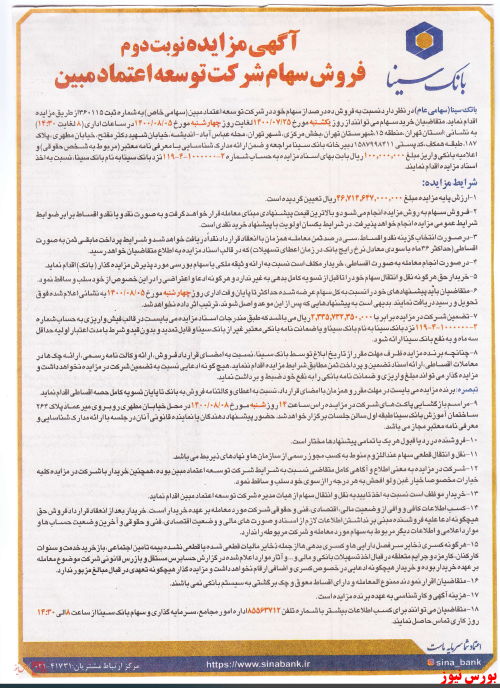 آگهی مزایده نوبت دوم
فروش سهام شرکت توسعه اعتماد مبین
بانک سینا
بانک سینا (سهامی عام) در نظر دارد نسبت به فروش ده درصد از سهام خود در شرکت توسعه اعتماد مبین (سهامی خاص) به شماره ثبت ۳۶۰۱۱۵ از طریق مزایده
اقدام نماید. متقاضیان خرید سهام می توانند از روز یکشنبه مورخ ۱۴۰۰/۰۷/۲۵ لغایت روز چهارشنبه مورخ ۱۴۰۰/۰۸/۰۵ در ساعات اداری (۸ لغایت ۱۴:۳۰)
به نشانی: استان تهران، منطقه ۱۵، شهرستان تهران، بخش مرکزی، شهر تهران، محله عباس آباد - اندیشه، خیابان شهید دکتر مفتح، خیابان مطهری، پلاک
۱۸۷، طبقه همکف، کد پستی ۱۵۸۷۹۹۸۴۱۱ دبیرخانه بانک سینا مراجعه و ضمن ارائه مدارک شناسایی یا معرفی نامه معتبر (مربوط به شخص حقوقی) و
اعلامیه بانکی واریز مبلغ ۱,۰۰۰,۰۰۰ ریال بابت بهای اسناد مزایده به حساب شماره ۲-۱۰۰۰۰۰۰-۴-۱۱۹ نزد بانک سینا به نام بانک سینا، نسبت به اخذ
اسناد مزایده اقدام نمایند.
شرایط مزایده:
۱- ارزش پایه مزایده مبلغ ۴۶,۷۱۴,۶۴۷,۰۰۰,۰۰۰ ریال تعیین گردیده است.
۲- فروش سهام به روش مزایده انجام می شود و بالاترین قیمت پیشنهادی مبنای معامله قرار خواهد گرفت و به صورت نقد و یا نقد و اقساط برابر ضوابط
شرایط عمومی مزایده انجام خواهد پذیرفت. در شرایط یکسان اولویت با پیشنهاد خرید نقدی است.
۳- در صورت انتخاب گزینه نقد و اقساط، سی درصد ثمن معامله همزمان با انعقاد قرارداد نقداً دریافت خواهد شد و شرایط پرداخت مابقی ثمن به صورت
اقساط (حداکثر ۳۶ ماه با سودی معادل نرخ رایج بانک در زمان اعطای تسهیلات) که در قالب اسناد مزایده به اطلاع متقاضیان خواهد رسید.
۴- در صورت انجام معامله به صورت اقساطی، خریدار مکلف است نسبت به ارائه وثیقه ملکی یا سهام بورسی مورد پذیرش مزایده گذار (بانک) اقدام نماید.
۵- خریدار حق هرگونه نقل و انتقال سهام خود را تا قبل از تسویه کامل بدهی به غیر ندارد و هرگونه ادعا و اعتراضی را در این خصوص از خود سلب و ساقط نمود.
۶- متقاضیان باید پیشنهادهای خود را نسبت به کل سهام عرضه شده حداکثر تا پایان وقت اداری روز چهارشنبه مورخ ۱۴۰۰/۰۸/۰۵ به نشانی اعلام شده فوق
تحویل و رسید دریافت نمایند. بدیهی است به پیشنهادهایی که پس از این موعد واصل شود، ترتیب اثر داده نخواهد شد.
۷- تضمین شرکت در مزایده برابر با ۲,۳۳۵,۷۳۲,۳۵۰,۰۰۰ ریال می باشد که طبق مندرجات اسناد مزایده می بایست در قالب فیش واریزی به حساب شماره
۲-۱۰۰۰۰۰۰-۴-۱۱۹ نزد بانک سینا به نام بانک سینا و یا ضمانت نامه بانکی معتبر غیر از بانک سینا و قابل تمدید و بدون قید و شرط با مدت اعتبار اولیه حداقل
سه ماه و به نفع بانک سینا ارائه شود.
۸- چنانچه برنده مزایده ظرف مهلت مقرر از تاریخ ابلاغ توسط بانک سینا، نسبت به امضای قرارداد فروش، ارائه وکالت نامه رسمی، ارائه چک ها در
معاملات اقساطی، ارائه اسناد تضمین و پرداخت ثمن مطابق شرایط مزایده اقدام ننماید، هیچ گونه ادعایی نسبت به تضمین شرکت در مزایده نخواهد داشت و
مزایده گذار می تواند مبلغ واریزی و ضمانت نامه بانکی را به نفع خود ضبط و برداشت نماید.
تبصره: برنده مزایده می بایست در مهلت مقرر و همزمان با امضای قرارداد، نسبت به اعطای وکالتنامه فروش به بانک تا پایان تسویه کامل حصه اقساطی اقدام نماید.
۹- مراسم بازگشایی پاکت های شرکت در مزایده در راس ساعت ۱۴ روز شنبه مورخ ۱۴۰۰/۰۸/۰۸ در محل خیابان مطهری، روبروی میرعماد پلاک ۲۶۳
ساختمان آموزش بانک سینا، طبقه اول سالن جلسات برگزار خواهد شد. حضور پیشنهاد دهندگان یا نماینده قانونی آنان در جلسه با ارائه مدارک شناسایی و
معرفی نامه معتبر مجاز می باشد.
۱۰- فروشنده در رد یا قبول هر یک یا تمامی پیشنهادها مختار است.
۱۱- نقل و انتقال قطعی سهام عندالزوم منوط به کسب مجوز رسمی از سازمان ها و نهادهای ذیربط می باشد.
۱۲- شرکت در مزایده به معنی اطلاع و آگاهی کامل متقاضی نسبت به شرایط شرکت توسعه اعتماد مبین بوده، همچنین خریدار با شرکت در مزایده کلیه
خیارات خصوصا خیار غبن ولو افحش به هر درجه را از سوی خود سلب و ساقط نمود.
۱۳- خریدار موظف است نسبت به اخذ تاییدیه نقل و انتقال سهام از هیات مدیره شرکت توسعه اعتماد مبین اقدام نماید.
۱۴- کسب اطلاعات کافی و وافی از وضعیت مالی، اقتصادی، فنی و حقوقی شرکت مورد معامله بر عهده خریدار است. خریدار بعد از انعقاد قرارداد فروش حق
هیچگونه ادعا علیه فروشنده مبنی بر نداشتن اطلاعات لازم از اسناد و صورت های مالی و وضعیت اقتصادی، فنی و حقوقی و آخرین وضعیت حساب ها و
موارد و اعلامی و اطلاعات دیگر مربوط به سهام مورد معامله و شرکت مربوطه را ندارد.
۱۵- هر گونه کسری ذخایر سرفصل دارایی ها و کسری بدهی ها از جمله ذخایر مالیات قطعی شده یا قطعی نشده، بیمه تامین اجتماعی، باز خرید خدمت و سنوات
کارکنان، کارمزد و جرایم متعلقه در قبال اخذ تسهیلات بانکی و مالی و ... و آثار موارد اعلام شده در گزارش حسابرس مستقل و بازرس قانونی شرکت موضوع معامله
بر عهده خریدار بوده و خریدار هیچگونه ادعایی در خصوص کسری و اضافی ارقام نخواهد داشت و مزایده گذار هیچگونه تعهدی در قبال مبالغ مزبور ندارد.
۱۶- متقاضیان اقرار نمودند ممنوع المعامله و دارای اقساط معوق و چک برگشتی به سیستم بانکی نمی باشند.
۱۷- هزینه آگهی و کارشناسی به عهده برنده مزایده است.
۱۸- متقاضیان می توانند برای کسب اطلاعات بیشتر با شماره تلفن ۸۵۵۶۳۷۱۲ اداره امور مجامع، سرمایه گذاری و سهام بانک سینا از ساعت ۸ الی ۱۴:۳۰
روز کاری تماس حاصل نمایند.
اعتماد شما سرمایه ماست
sina_bank
https://www.sinabank.ir
مرکز ارتباط مشتریان: ۰۲۱-۴۱۷۳۱
بورس نیوز